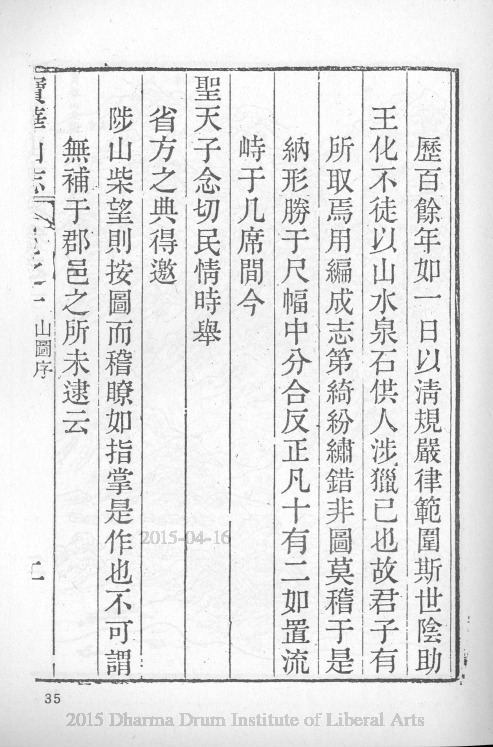 歷百餘年如一日以淸規嚴律範圍斯世陰助
王化不徒以山水泉石供人涉獵已也故君子有
所取焉用編成志第綺紛繡錯非圖莫稽于是
納形勝于尺幅中分合反正凡十有二如置流
峙于几席間今
聖天子念切民情時舉
省方之典得邀
陟山柴望則按圖而稽瞭如指掌是作也不可謂
無補于郡邑之所未逮云
寶華山志
山圖序
35
2015-04-16
2015 Dharma Drum Institute of Liberal Arts